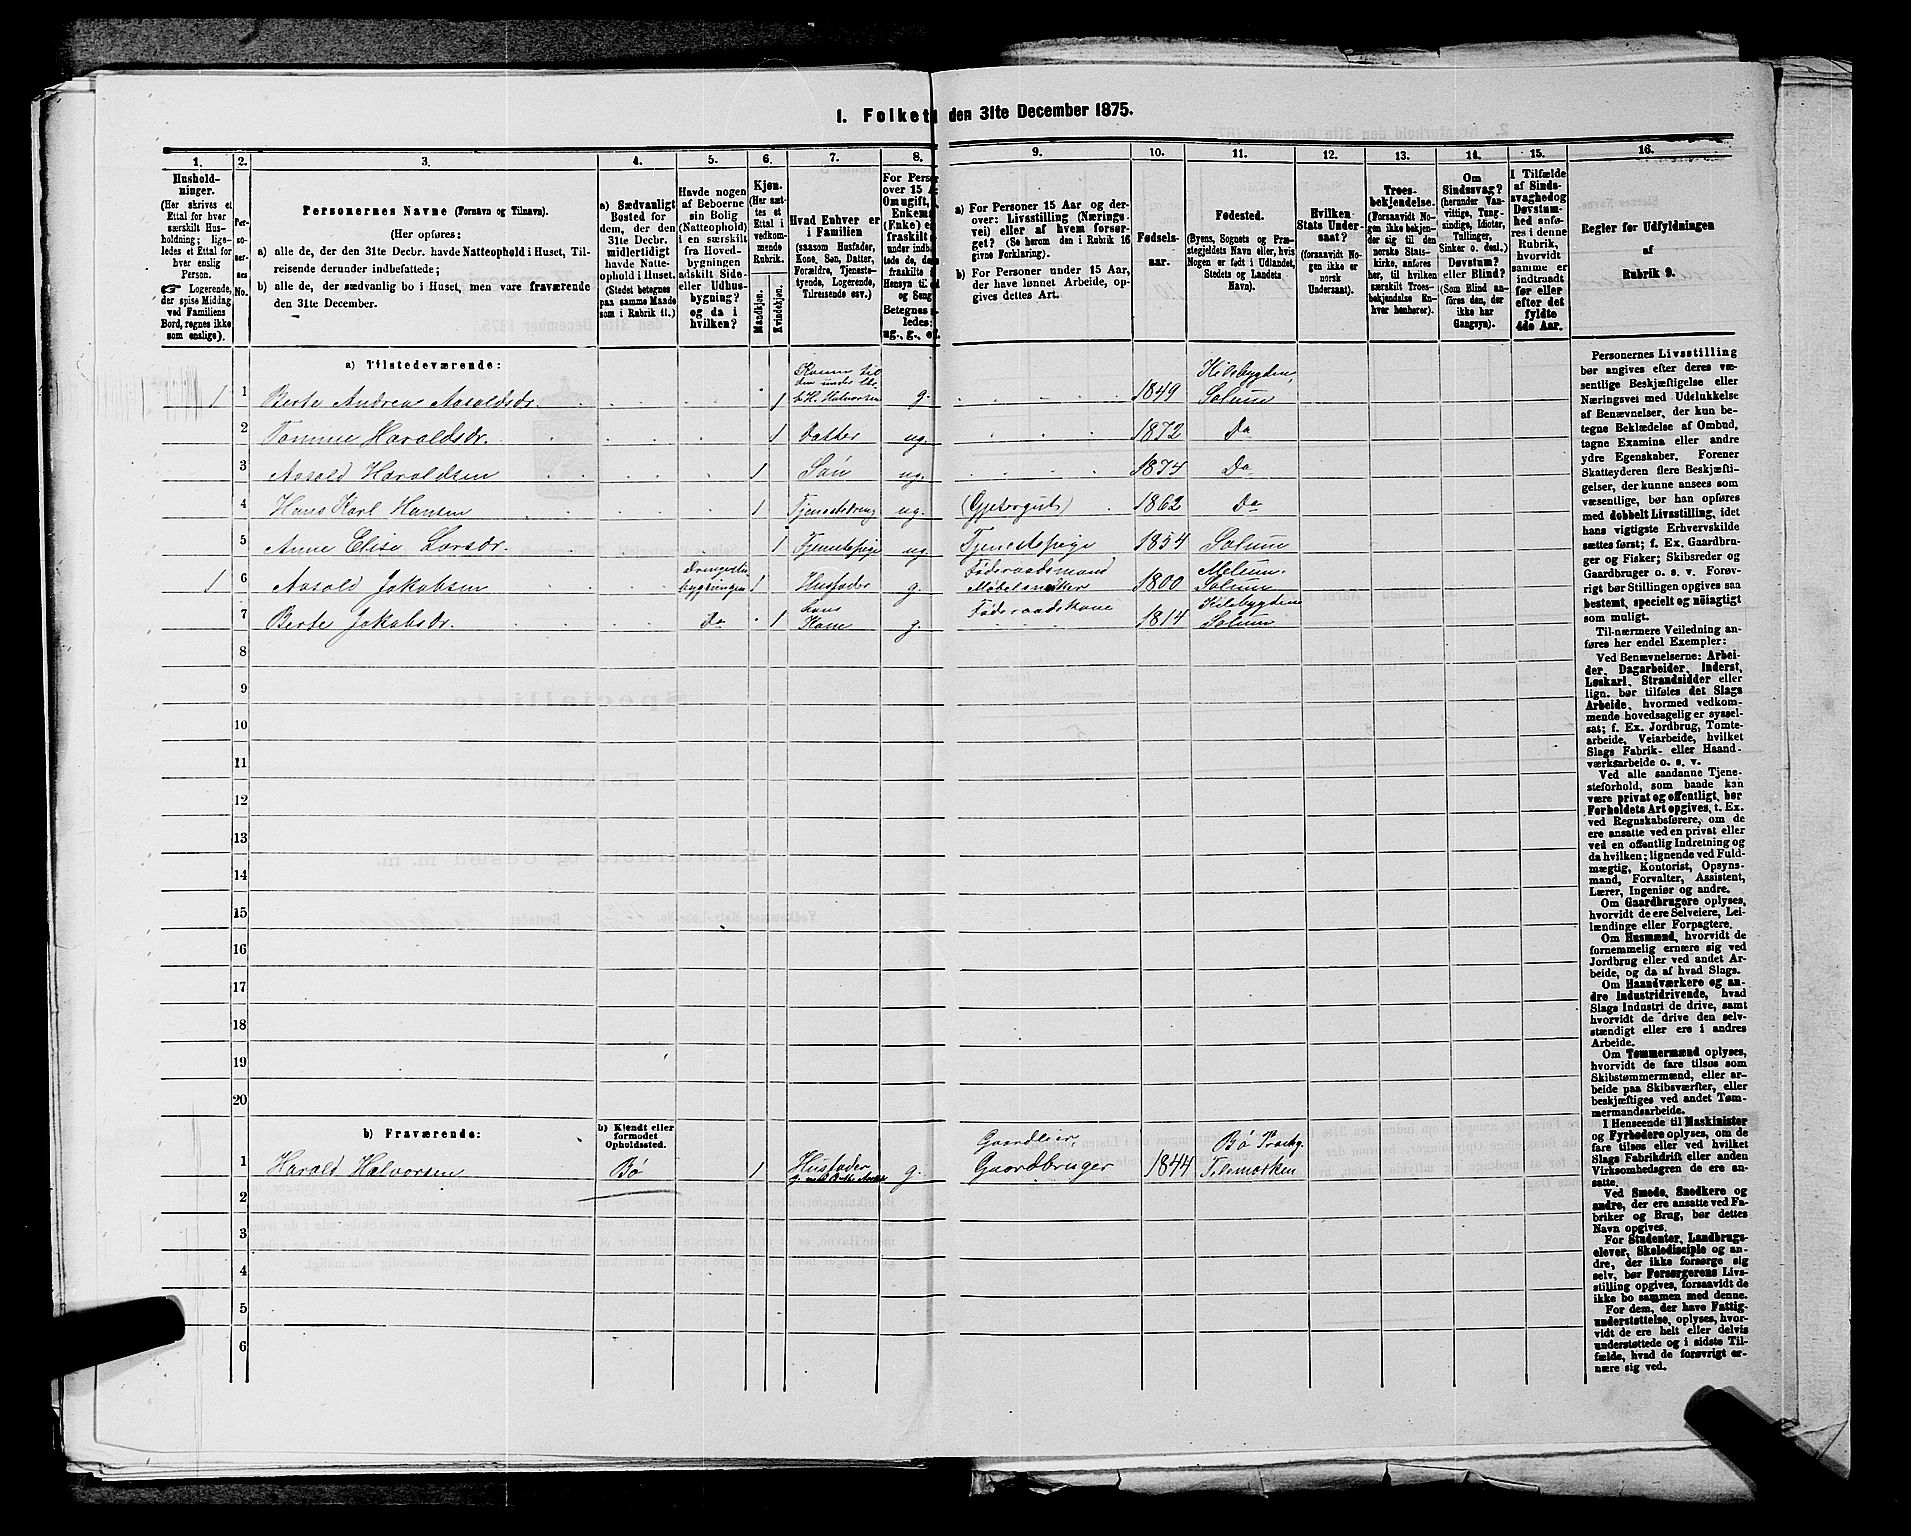 1. Folket
den 31te December 1875.
1. 2. 3. 4. 5. 6. 7. 8. 9. 10. 11. 12. 13. 14. 15. 16.
Hushold-
ninger.
(Her skrives et
Ettal for hver
særskilt Hus-
holdning; lige-
ledes et Ettal
for hver enslig
Person.
Logerende,
der spise Middag
ved Familiens
Bord, regnes ikke
som enslige).
Per-
so-
ner-
nes
No.
Personernes Navne (Fornavn og Tilnavn).
(Her opføres:
a) alle de, der den 31te Decbr. havde Natteophold i Huset, Til-
reisende derunder indbefattede;
b) alle de, der sædvanlig bo i Huset, men vare fraværende
den 31te December.
a) Sædvanligt
Bosted for
dem, der den
31te Decbr.
midlertidigt
havde Natte-
ophold i Huset.
(Stedet betegnes
paa samme Maade
som i Rubrik 11.)
Havde nogen
af Beboerne
sin Bolig
(Natteophold)
i en særskilt
fra Hoved-
bygningen
adskilt Side-
eller Udhus-
bygning?
og da i
hvilken?
Kjøn.
(Her sæt-
tes et
Ettal i
vedkom-
mende
Rubrik.
Mandkjøn.
Kvindekjøn.
Hvad Enhver er
i Familien
(saasom Husfader,
Kone, Søn, Datter,
Forældre, Tjeneste-
tyende, Logerende,
Tilreisende osv.)
For Perso
over 15 A
Omugift,
Enkem
(Enke) e
fraskilt
under indb
tede de, de
fraskilte
Hensyn til
og Seng
Betegnes s
ledes:
ug., g., e
a) For Personer 15 Aar og der-
over: Livsstilling (Nærings-
vei) eller af hvem forsør-
get? (Se herom den i Rubrik 16
givne Forklaring).
b) For Personer under 15 Aar,
der have lønnet Arbeide, op-
gives dettes Art.
Fødsels-
aar.
Fødested.
(Byens, Sognets og Præ-
stegjeldets Navn eller, hvis
Nogen er født i Udlandet,
Stedets og Landets
Navn).
Hvilken
Stats Under-
saat?
(forsaavidt No-
gen ikke er
norsk
Undersaat).
Troes-
bekjendelse.
(Forsaavidt No-
gen ikke bekjen-
der sig til den
norske Stats-
kirke, anføres
her, til hvilken
særskilt Troes-
bekjendelse En-
hver henhører).
Om
Sindssvag?
(herunder Van-
vittige, Tung-
sindige, Idioter,
Tullinger,
Sinker o. desl.)
Døvstum?
eller Blind?
(Som Blind an-
føres den, der
ikke har
Gangsyn).
I Tilfælde
af Sinds-
svaghed og
Døvstum-
hed anfø-
res i denne
Rubrik,
hvorvidt
samme er
indtraadt
før eller
efter det
fyldte
4de Aar.
Regler for Udfyldningen
af
Rubrik 9.
a) Tilstedeværende:
1 1 Berte Andrea Aasoldsdr. 1 g. 1849 Kilebygden, Solum
2 Tomine Haroldsdr. 1 Datter ug. 1872 Do
3 Aasold Haroldsen 1 Søn ug. 1874 Do
4 Hans Karl Hansen 1 Tjenestedreng ug. (Gjetergut) 1862 Do
5 Anne Elise Larsdr. 1 Tjenestepige ug. Tjenestepige 1854 Solum
1 6 Aasold Jakobsen 1 Husfader g. Føderaadsmand 1800 Melum. Solum
7 Berte Jakobsdr. Do 1 hans Kone g. Føderaadskone 1814 Kilebygden Solum
8
9
10
11
12
13
14
15
16
17
18
19
20
b) Fraværende:
b) Kjendt eller
formodet
Opholdssted.
1 Harald Halvorsen Bø 1 Husfader g. Gaardeier, Gaardbruger 1844 Bø Telemarken
2
3
4
5
6
Personernes Livsstilling
bør angives efter deres væ-
sentlige Beskjæftigelse eller
Næringsvei med Udelukkelse
af Benævnelser, der kun be-
tegne Beklædelse af Ombud,
tagne Examina eller andre
ydre Egenskaber. Forener
Skatteyderen flere Beskjæfti-
gelser, der kunne ansees som
væsentlige, bør han opføres
med dobbelt Livsstilling, idet
hans vigtigste Erhvervskilde
sættes først; f. Ex. Gaardbru-
ger og Fisker; Skibsreder og
Gaardbruger o. s. v. Forøv-
rigt bør Stillingen opgives saa
bestemt, specielt og nøiagtigt
som muligt.
Til nærmere Veiledning an-
føres her endel Exempler:
Ved Benævnelserne: Arbei-
der, Dagarbeider, Inderst,
Løskarl, Strandsidder eller
lign. bør tilføies det Slags
Arbeide, hvormed vedkom-
mende hovedsagelig er syssel-
sat; f. Ex. Jordbrug, Tomte-
arbeide, Veiarbeide, hvilket
Slags Fabrik- eller Haand-
værksarbeide o. s. v.
Ved alle saadanne Tjene-
steforhold, som baade kan
være privat og offentligt, bør
Forholdets Art opgives, t. Ex.
ved Regnskabsførere, om de
ere ansatte ved en privat eller
ved en offentlig Indretning og
da hvilken; lignende ved Fuld-
mægtig, Kontorist, Opsyns-
mand, Forvalter, Assistent,
Lærer, Ingeniør og andre.
Om Gaardbrugere oplyses,
hvorvidt de ere Selveiere, Lei-
lændinge eller Forpagtere.
Om Husmænd, hvorvidt de
fornemmelig ernære sig ved
Jordbrug eller ved andet Ar-
beide, og da af hvad Slags.
Om Haandværkere og an-
dre Industridrivende, hvad
Slags Industri de drive, samt
hvorvidt de drive den selv-
stændigt eller ere i andres
Arbeide.
Om Tømmermænd oplyses,
hvorvidt de fare tilsøs som
Skibstømmermænd, eller ar-
beide paa Skibsværfter, eller
beskjæftiges ved andet Tøm-
mermandsarbeide.
I Henseende til Maskinister
og Fyrbødere oplyses, om de
fare tilsøs eller ved hvilket
Slags Fabrikdrift eller anden
Virksomhedsgren de ere an-
satte.
Ved Smede, Snedkere og
andre, der ere ansatte ved Fa-
briker og Brug, bør dettes
Navn opgives.
For Studenter, Landbrugs-
elever, Skoledisciple og an-
dre, der ikke forsørge sig
selv, bør Forsørgerens Livs-
stilling opgives, forsaavidt de
ikke bo sammen med denne.
For dem, der have Fattig-
understøttelse, oplyses, hvor-
vidt de ere helt eller delvis
understøttede og i sidste Til-
fælde, hvad de forøvrigt er-
nære sig ved.